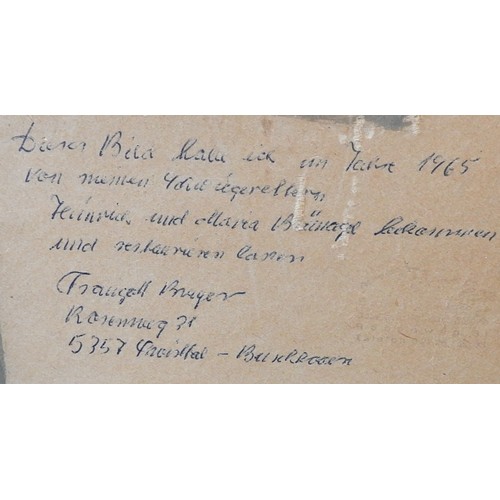 Dieses Bild habe ich im Jahre 1965
von meinen Schwiegereltern
Heinrich und Maria bekommen
und restaurieren lassen
Traugott
Rosenweg 31
5357 Swisttal - Buschhoven